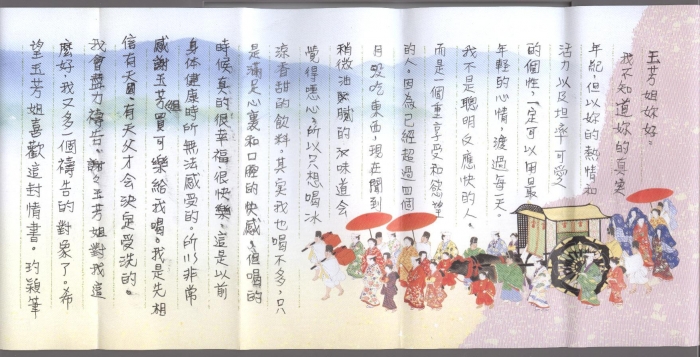 玉芳姐妳好。
我不知道妳的真實
年紀，但以妳的熱情和
活力以及坦率可愛
的個性，一定可以用最
年輕的心情，渡過每一天。
我不是聰明反應快的人，
而是一個重享受和慾望
的人。因為已經超過四個
月沒吃東西，現在聞到
稍微油膩膩的味道會
覺得噁心，所以只想喝冰
涼香甜的飲料，其實我也喝不多，只
是滿足心裏和口腔的快感，但喝的
時候真的很幸福、很快樂，這是以前
身体健康時所無法感受的。所以非常
感謝玉芳姐買可樂給我喝。我是先相
信有天國、有天父才会決定受洗的。
我會盡力禱告。謝謝玉芳姐對我這
麼好，我又多一個禱告的對象了。希
望玉芳姐喜歡這封情書。玓穎筆